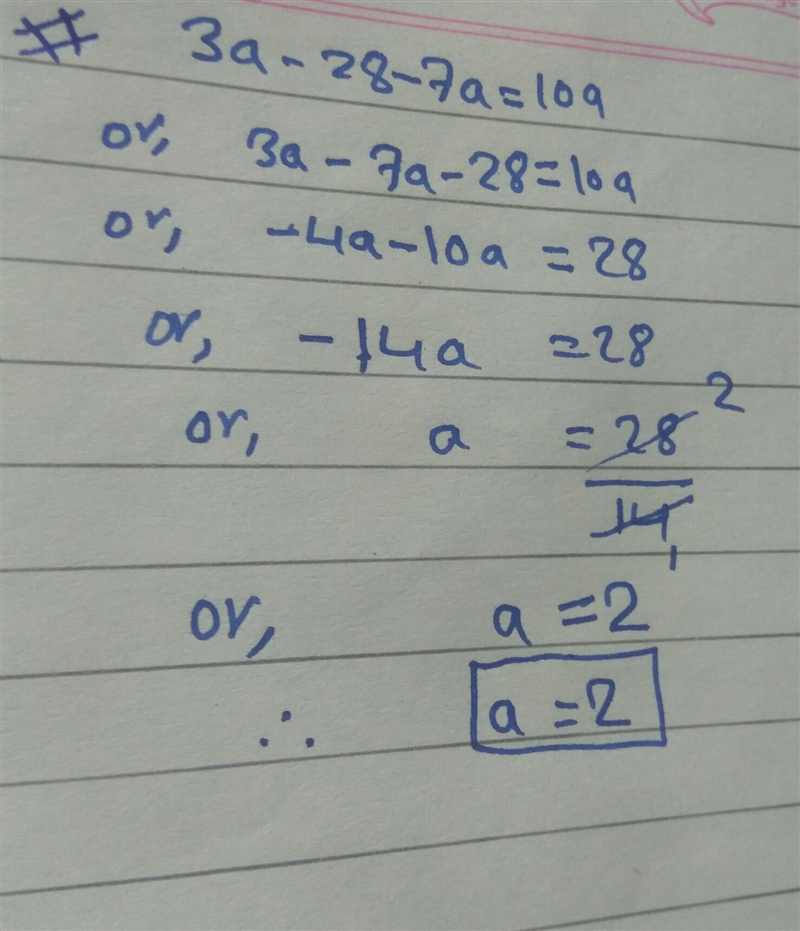 # 3a - 28 - 7a = 10a
or, 3a - 7a - 28 = 10a
or, -4a - 10a = 28
or, -14a = 28
or, a = 28 2
14 1
or, a = 2
∴ a = 2